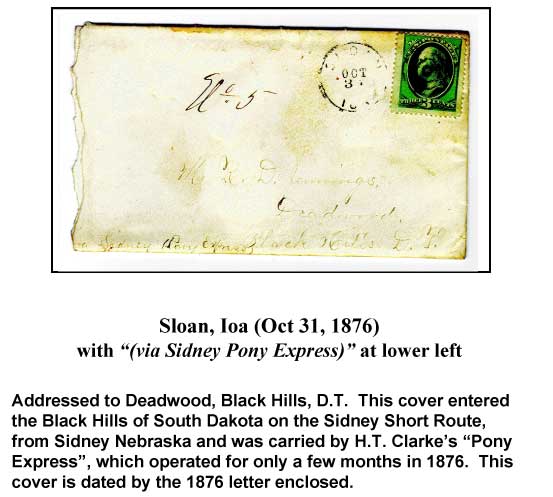 OCT
3
U.S. POSTAGE
THREE CENTS
No. 5
Mr. D. Jennings,
Deadwood,
Black Hills, D. T.
via Sidney Pony Express
Sloan, Ioa (Oct 31, 1876)
with “(via Sidney Pony Express)” at lower left
Addressed to Deadwood, Black Hills, D.T. This cover entered
the Black Hills of South Dakota on the Sidney Short Route,
from Sidney Nebraska and was carried by H.T. Clarke’s “Pony
Express”, which operated for only a few months in 1876. This
cover is dated by the 1876 letter enclosed.